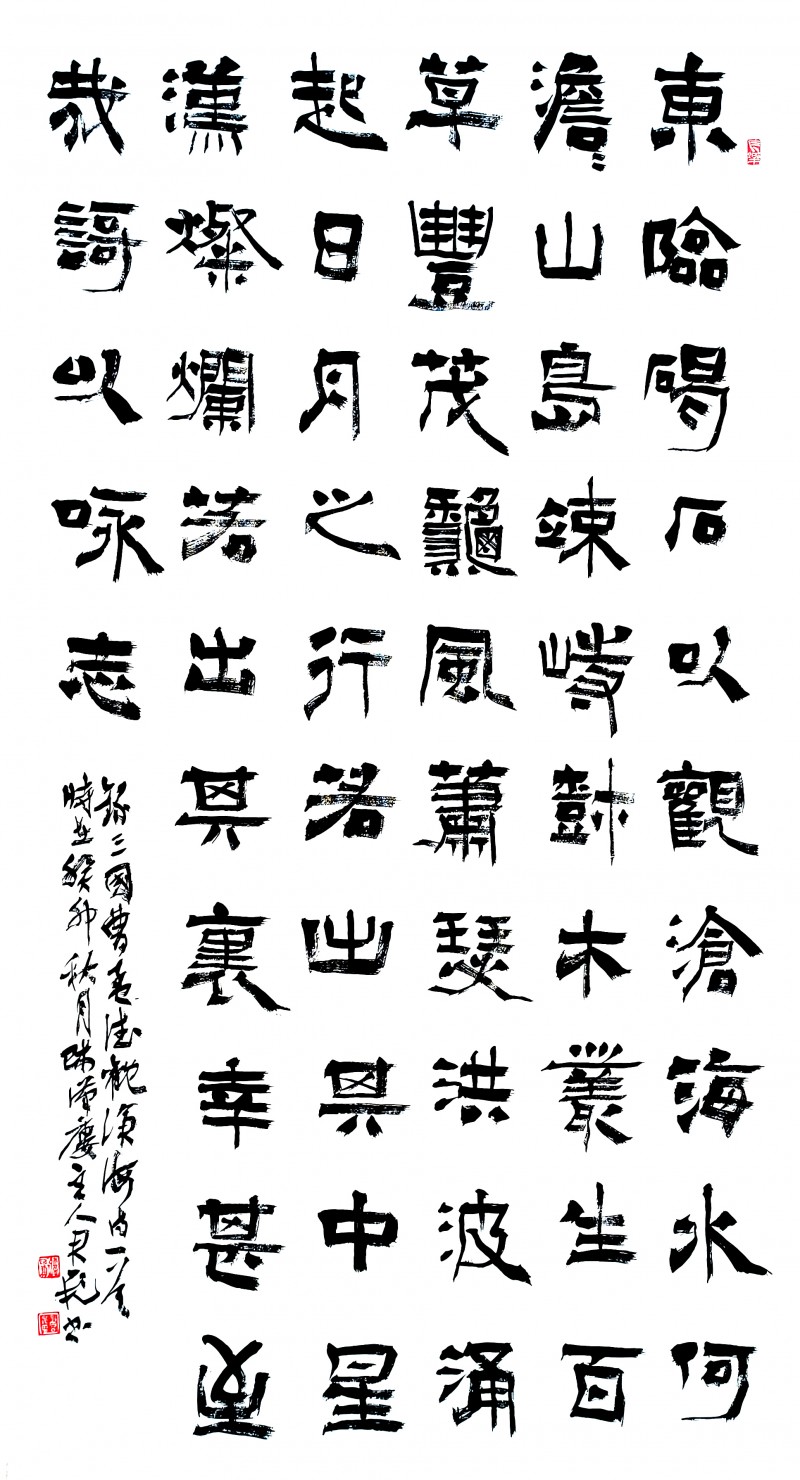 東臨碣石以觀滄海水何
澹〻山島竦峙樹木叢生百
草豐茂龝風蕭瑟洪波涌
起日月之行若出其中星
漢燦爛若出其裏幸甚至
哉謌以咏志
錄三國曹孟德觀滄海一
時在癸卯秋月主人書